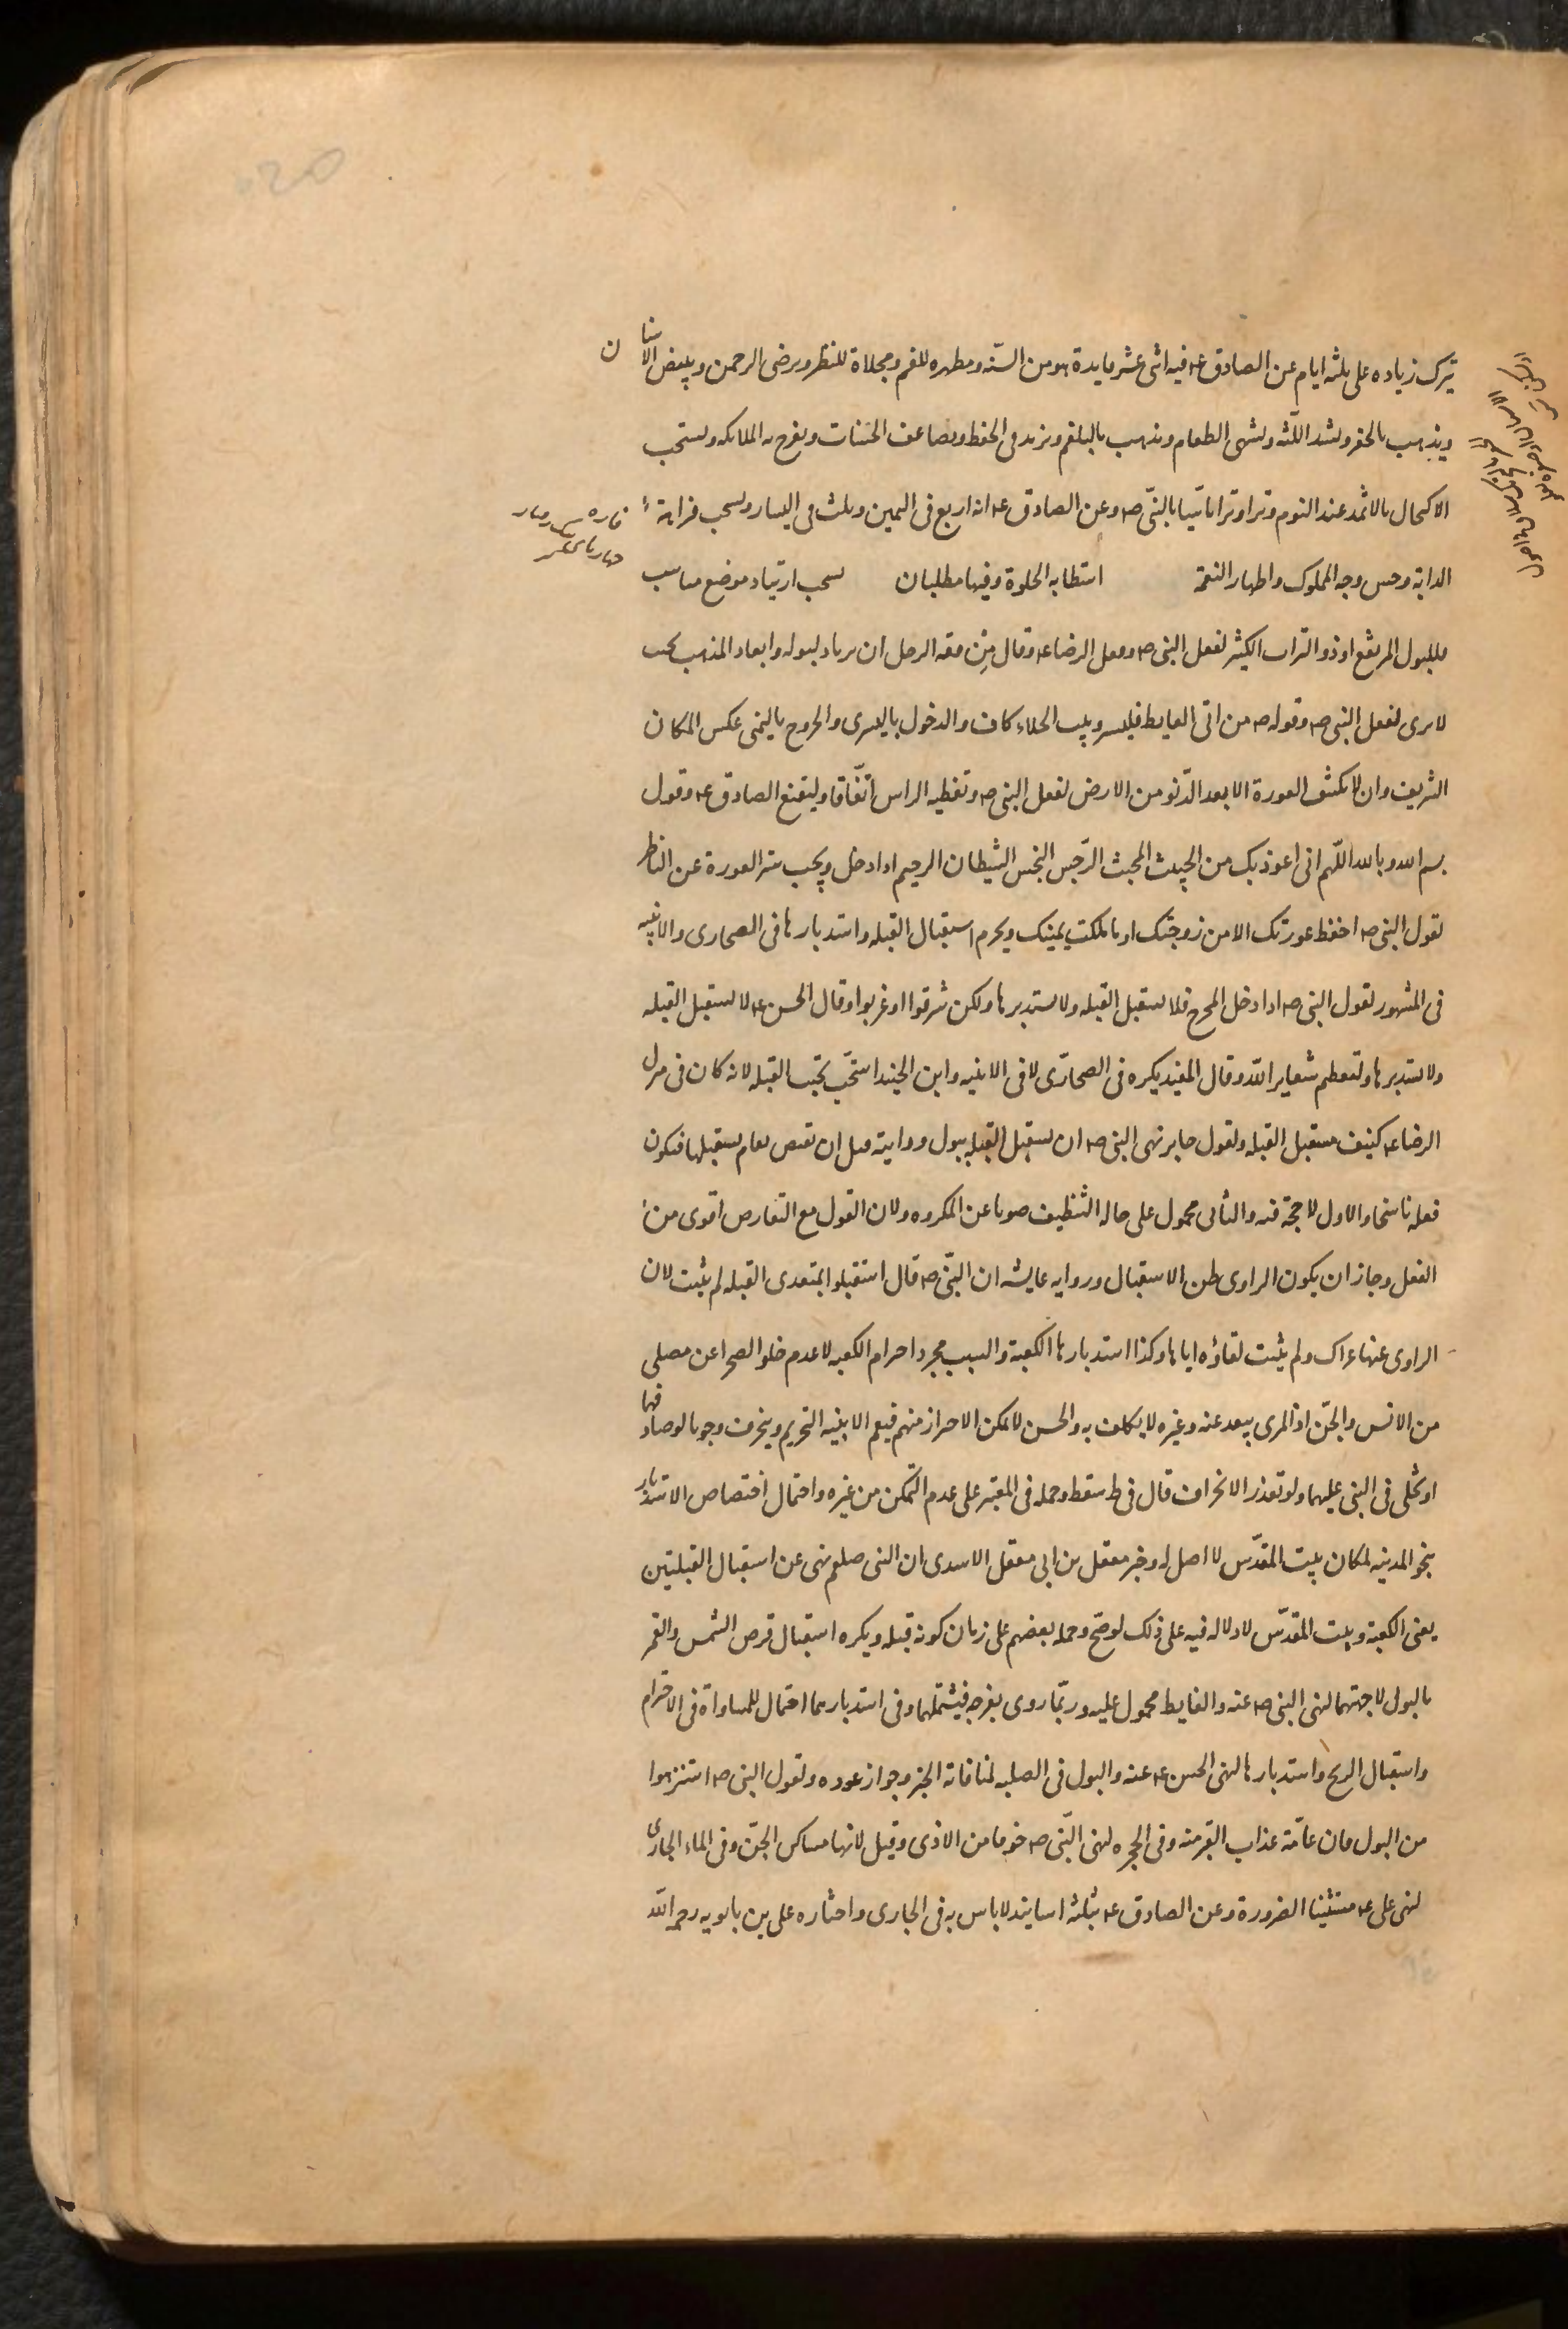 يترك زياده على ثلثه ايام عن الصادق عه فيه اثنى عشر فايدة هو من السنه ومطهره للفم ومجلاة للنظر ويرضى الرحمن ويبيض الاسنان
ويذهب بالحفر ويشد اللثه ويشهى الطعام ويذهب بالبلغم ويزيد فى الحفظ ويضاعف الحسنات ويفرح به الملائكه ويستحب
الاكتحال بالاثمد عند النوم وترا وترا تاسيا بالنبى صه وعن الصادق عه انه اربع فى اليمين وثلث فى اليسار ويستحب فراهة
الدابة وحسن وجه المملوك واظهار النعمة استطابه الخلوة وفيها مطلبان يستحب ارتياد موضع مناسب
للبول المرتفع او ذو التراب الكثير لفعل النبى صه وفعل الرضا عه وقال من فقه الرجل ان يرتاد لبوله وابعاد المذهب بحيث
لا يرى لفعل النبى صه وقوله صه من اتى الغايط فليستر وبيت الخلاء كاف والدخول باليسرى والخروج باليمنى عكس المكان
الشريف وان لا يكشف العورة الا بعد الدنو من الارض لفعل النبى صه وتغطيه الراس اتفاقا وليتقنع الصادق عه وقول
بسم الله وبالله اللهم انى اعوذ بك من الخبيث المخبث الرجس النجس الشيطان الرجيم اذا دخل ويجب ستر العورة عن الناظر
لقول النبى صه احفظ عورتك الا من زوجتك او ما ملكت يمينك ويحرم استقبال القبله واستدبارها فى الصحارى والابنيه
فى المشهور لقول النبى صه اذا دخل المخرج فلا يستقبل القبله ولا يستدبرها ولكن شرقوا او غربوا وقال الحسن عه لا تستقبل القبله
ولا تستدبرها ولتعظيم شعاير الله وقال المفيد يكره فى الصحارى لا فى الابنيه وابن الجنيد استحب تجنب القبله لانه كان فى منزل
الرضا عه كنيف مستقبل القبله ولقول جابر نهى النبى صه ان يستقبل القبله ببول ورايته قبل ان يقبض بعام يستقبلها فيكون
فعله ناسخا والاول لا حجة فيه والثانى محمول على حاله التنظيف صونا عن المكروه ولان القول مع التعارض اقوى من
الفعل وجاز ان يكون الراوى ظن الاستقبال وروايه عايشه ان النبى صه قال استقبلوا بمقعدى القبله لم يثبت لان
الراوى عنها عراك ولم يثبت لقاؤه اياها وكذا استدبارها الكعبة والسبب مجرد احترام الكعبه لا عدم خلو الصحرا عن مصلى
من الانس والجن اذ المرى يبعد عنه وغيره لا يكلف به والحسن لا يمكن الاحراز منهم فيعم الابنيه التحريم وينحرف وجوبا لو صادفها
او تخلى فى المبنى عليهما ولو تعذر الانحراف قال فى ط سقط وحمله فى المعتبر على عدم التمكن من غيره واحتمال اختصاص الاستدبار
بنحو المدينه لمكان بيت المقدس لا اصل له وخبر معقل بن ابى معقل الاسدى ان النبى صلعم نهى عن استقبال القبلتين
يعنى الكعبة وبيت المقدس لا دلاله فيه على ذلك لو صح وحمله بعضهم على زمان كونه قبله ويكره استقبال قرص الشمس والقمر
بالبول لا جهتهما لنهى النبى صه عنه والغايط محمول عليه وربما روى بفرجه فيشملهما وفى استدبارهما احتمال للمساواة فى الاحترام
واستقبال الريح واستدبارها لنهى الحسن عه عنه والبول فى الصلبه لمنافاته الخبر وجواز عوده ولقول النبى صه استنزهوا
من البول فان عامة عذاب القبر منه وفى الجحره لنهى النبى صه خوفا من الاذى وقيل لانها مساكن الجن وفى الماء الجارى
لنهى على عه مستثنيا الضرورة وعن الصادق عه بثلثه اسانيد لا باس به فى الجارى واختاره على بن بابويه رحمه الله